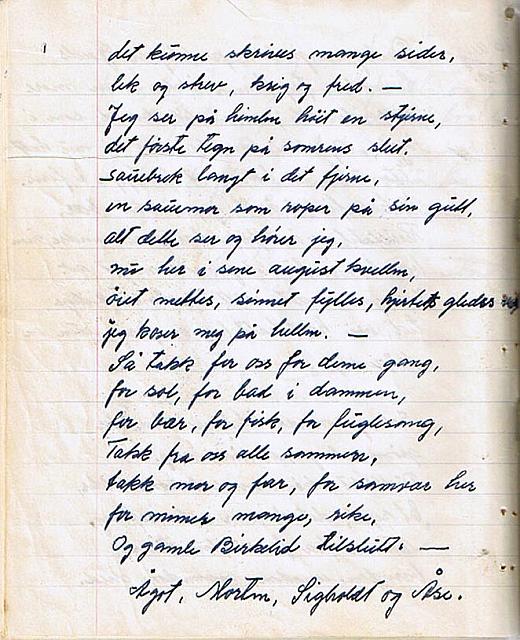 det kunne skrives mange sider,
lek og strev, krig og fred. —
Jeg ser på himlen höit en stjerne,
det förste tegn på somrens slut.
sauebrek langt i det fjerne,
en sauemor som roper på sin gutt,
alt dette ser og hörer jeg,
nu her i sene august kvellen,
öiet mettes, sinnet fylles, hjertet gledes
jeg koser meg på hellen. —
Så takk for oss for denne gang,
for sol, for bad i dammen,
for bær, for fisk, for fuglesang,
Takk fra oss alle sammen,
takk mor og far, for samvær her
for minner mange, rike,
Og gamle Birkelid tilslutt. —
Ågot, Morten, Sigholdt og Åse.